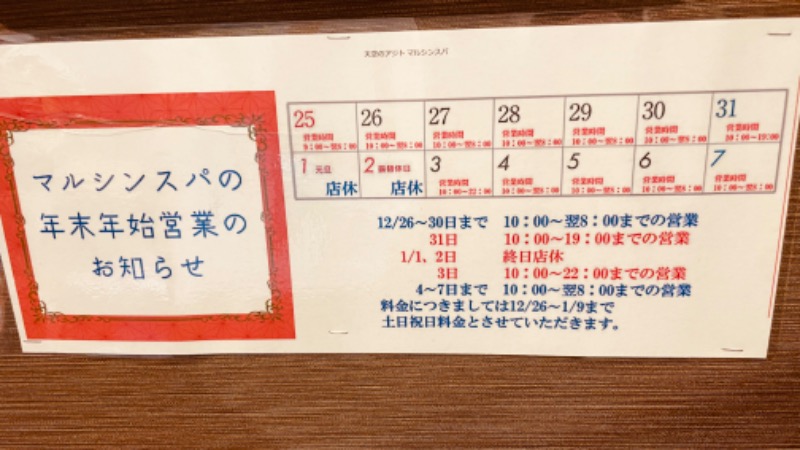 天空のアジト マルシンスパ
マルシンスパの
年末年始営業の
お知らせ
25 26 27 28 29 30 31
営業時間 営業時間 営業時間 営業時間 営業時間 営業時間 営業時間
9:00〜翌8:00 10:00〜翌8:00 10:00〜翌8:00 10:00〜翌8:00 10:00〜翌8:00 10:00〜翌8:00 10:00〜19:00
1 元旦 2 振替休日 3 4 5 6 7
店休 店休 営業時間 営業時間 営業時間 営業時間 営業時間
10:00〜22:00 10:00〜翌8:00 10:00〜翌8:00 10:00〜翌8:00 10:00〜翌8:00
12/26〜30日まで 10:00〜翌8:00までの営業
31日 10:00〜19:00までの営業
1/1、2日 終日店休
3日 10:00〜22:00までの営業
4〜7日まで 10:00〜翌8:00までの営業
料金につきましては12/26〜1/9まで
土日祝日料金とさせていただきます。